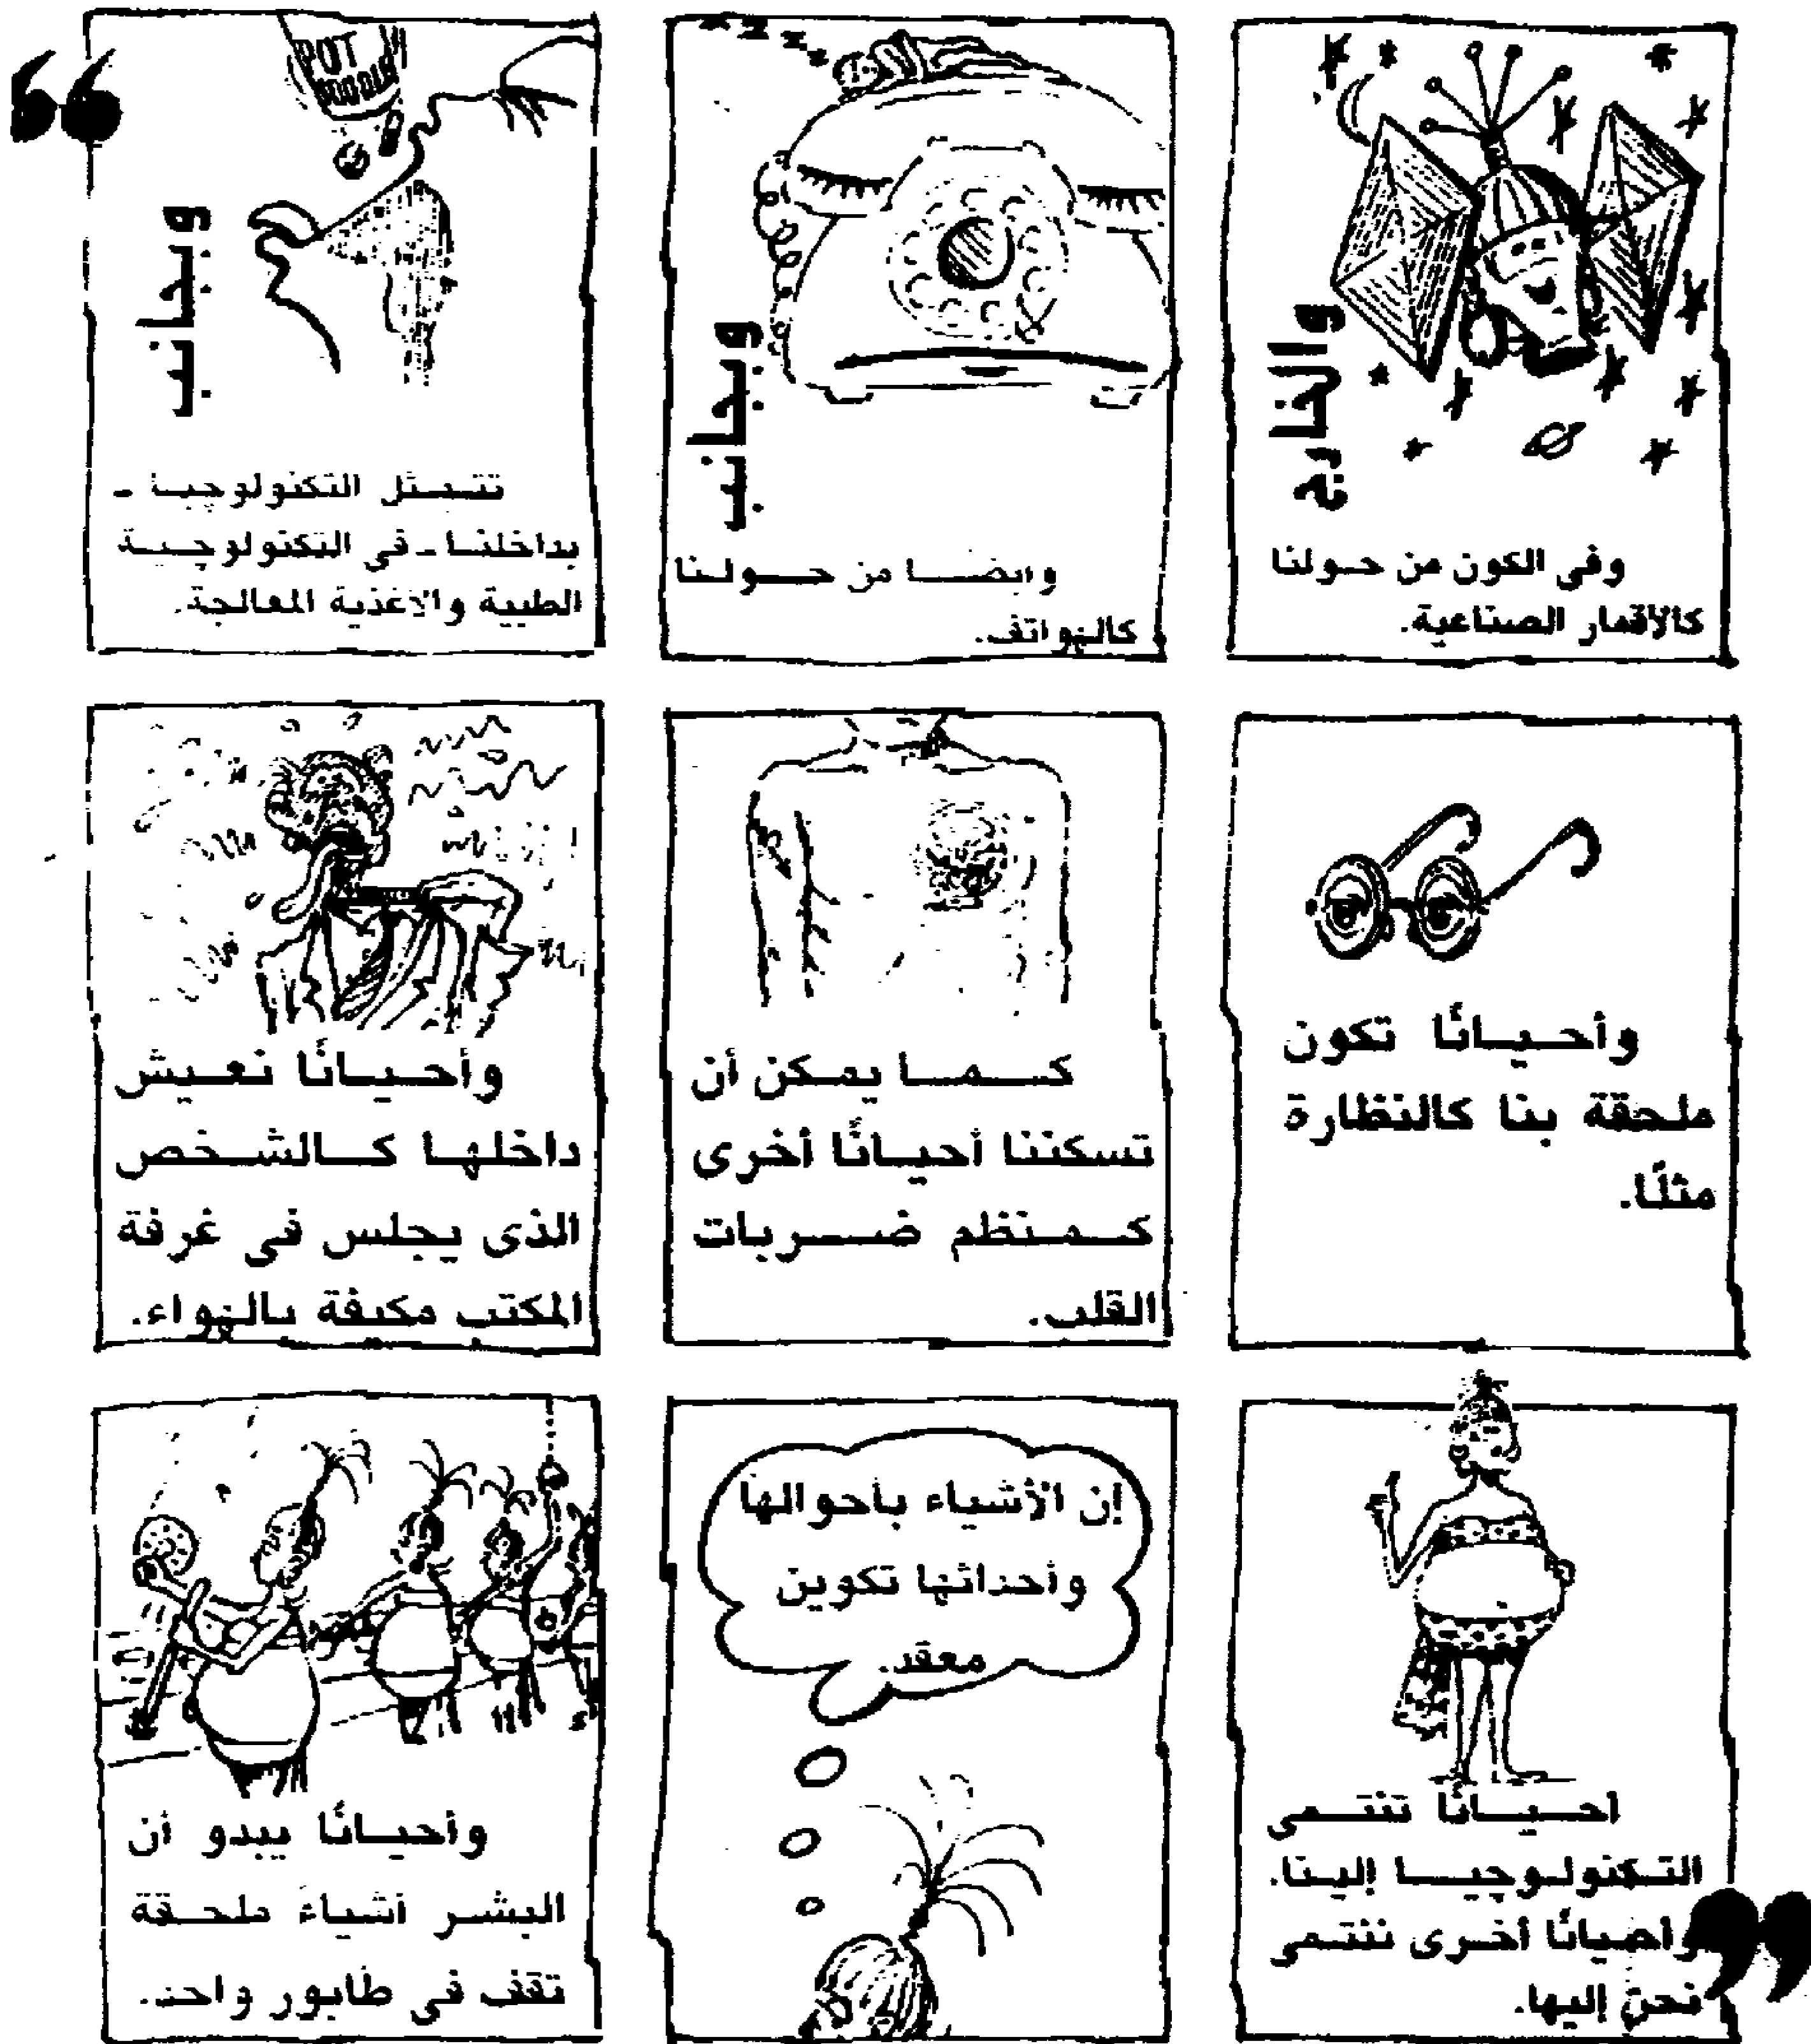 POT
وبجانب
تتمثل التكنولوجيا -
بداخلنا - فى التكنولوجية
الطبية والأغذية المعالجة.
وبجانب
وأيضا من حولنا
كالهواتف.
والخارج
وفى الكون من حولنا
كالأقمار الصناعية.
وأحيانًا نعيش
داخلها كالشخص
الذى يجلس فى غرفة
المكتب مكيفة بالهواء.
كما يمكن أن
تسكننا أحيانًا أخرى
كمنظم ضربات
القلب.
وأحيانًا تكون
ملحقة بنا كالنظارة
مثلًا.
وأحيانًا يبدو أن
البشر أشياء ملحقة
تقف فى طابور واحد.
إن الأشياء بأحوالها
وأحداثها تكوين
معقد.
أحيانًا تنتمى
التكنولوجيا إلينا.
وأحيانًا أخرى ننتمى
نحن إليها.